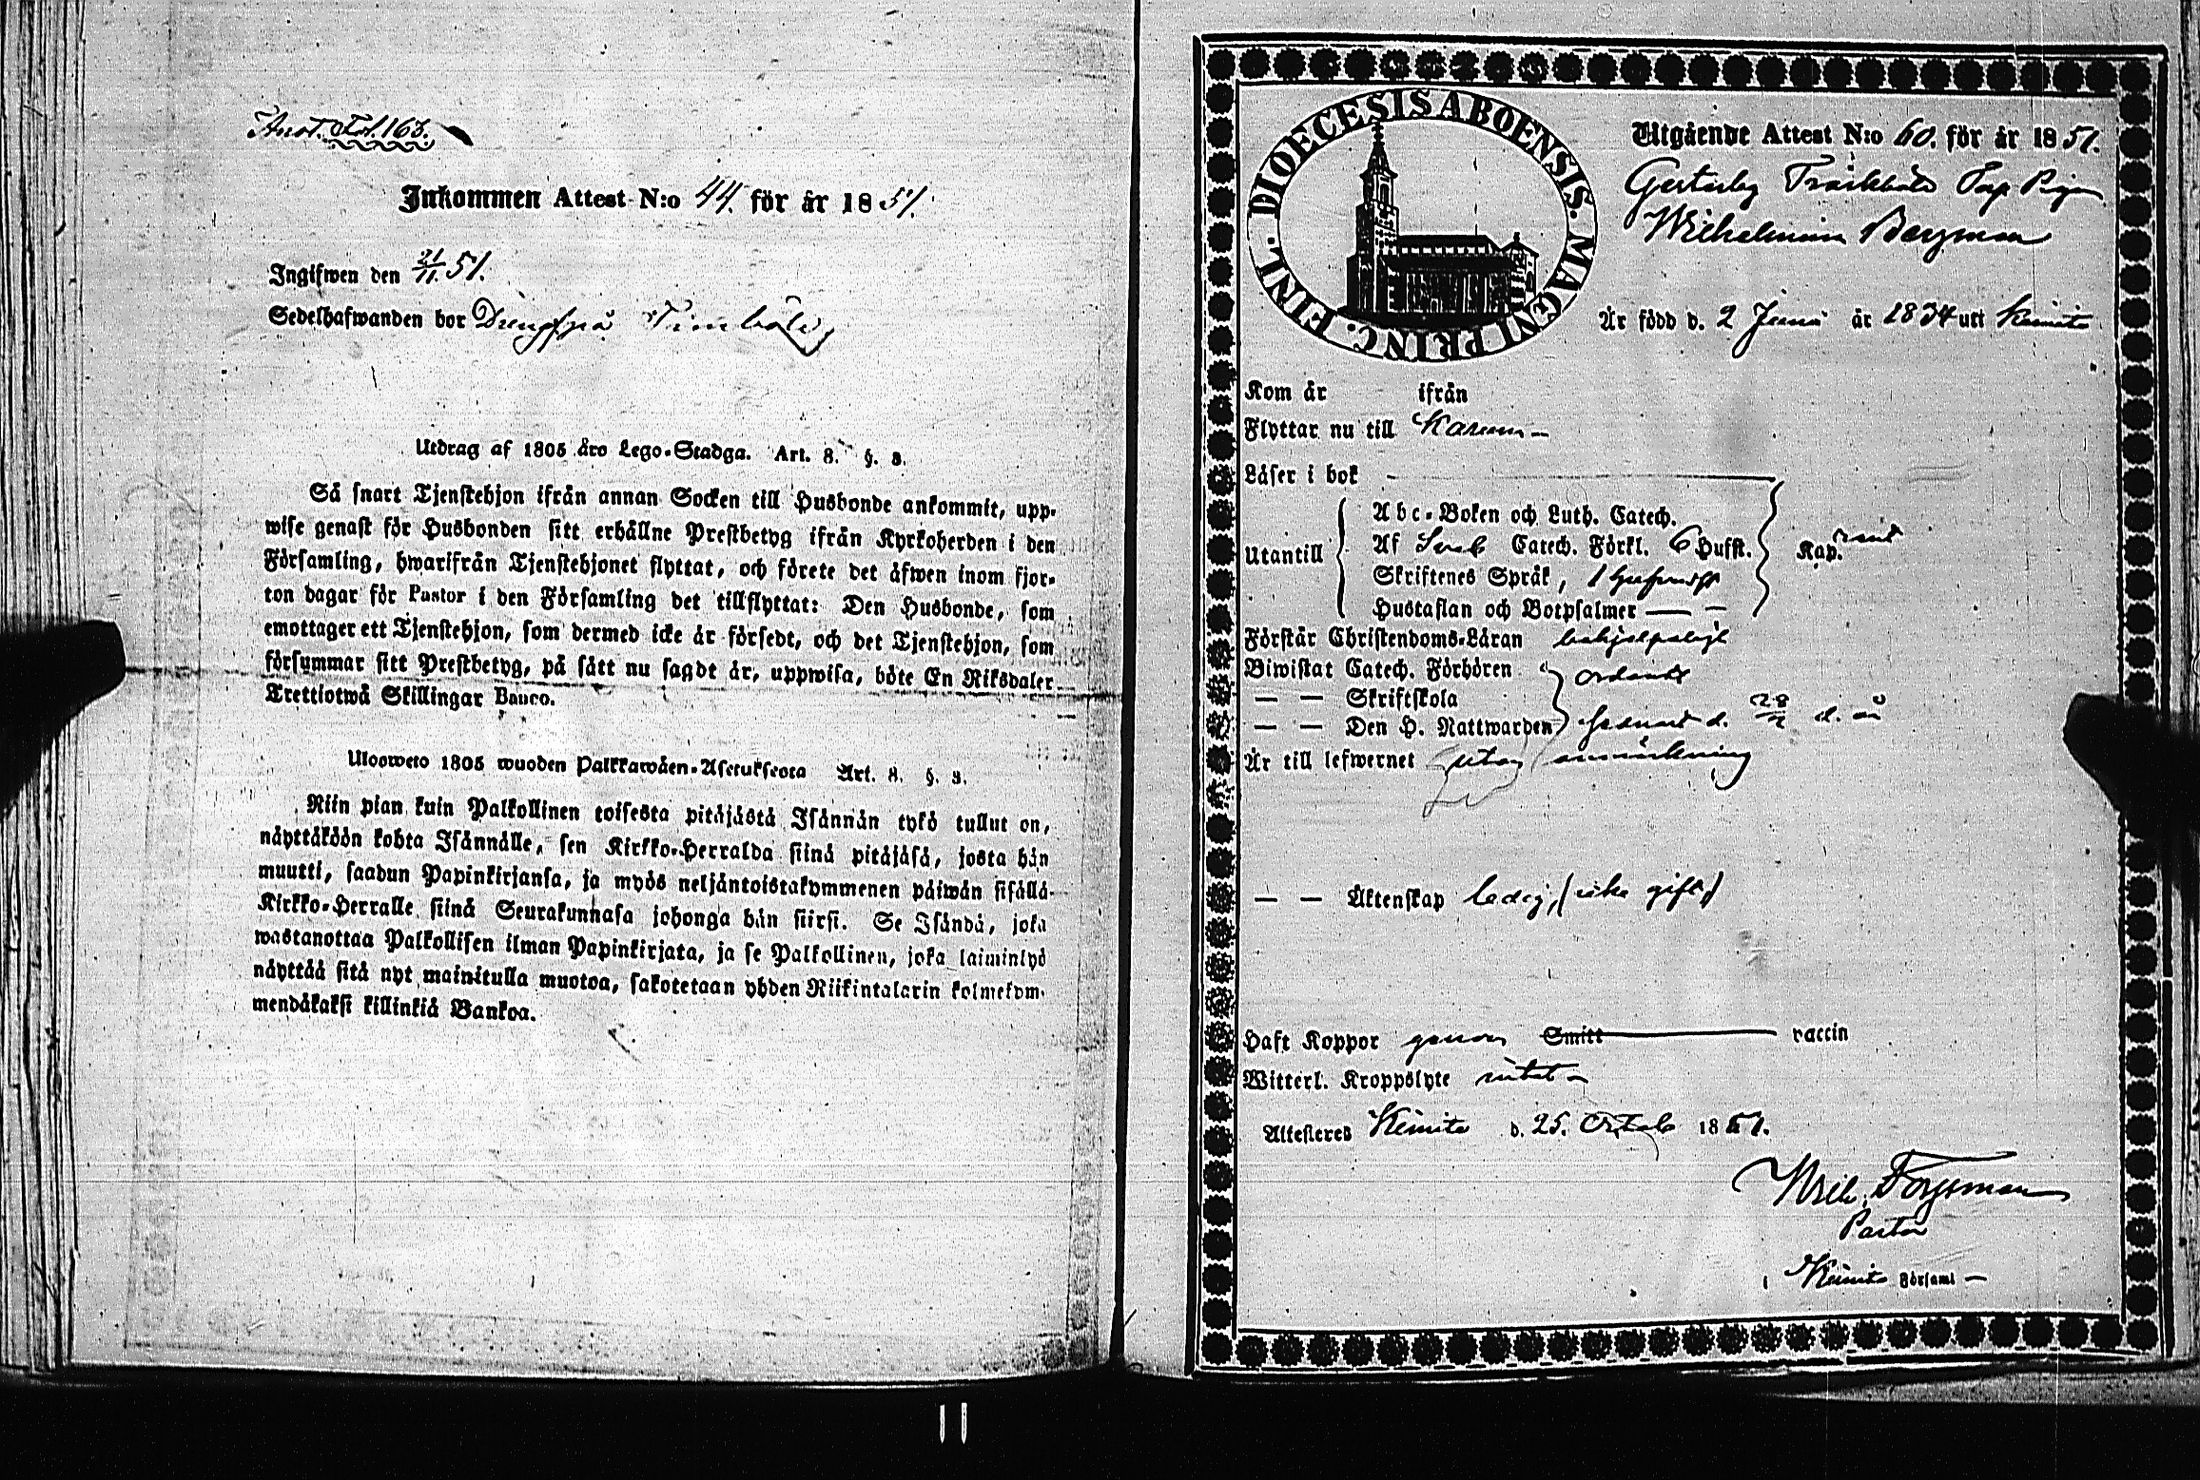 Anot. Fol. 163.
Inkommen Attest N:o 44. för år 1851.
Ingifwen den 21/11. 51.
Sedelhafwanden bor
Utdrag af 1805 års Lego-Stadga. Art. 8. §. 3.
Så snart Tjenstehjon ifrån annan Socken till Husbonde ankommit, upp-
wise genast för Husbonden sitt erhållne Prestbetyg ifrån Kyrkoherden i den
Församling, hwarifrån Tjenstehjonet flyttat, och förete det äfwen inom fjor-
ton dagar för Pastor i den Församling det tillflyttat: Den Husbonde, som
emottager ett Tjenstehjon, som dermed icke är försedt, och det Tjenstehjon, som
försummar sitt Prestbetyg, på sätt nu sagdt är, uppwisa, böte En Riksdaler
Trettiotwå Skillingar Banco.
Ulosweto 1805 wuoden Palkkawäen-Asetuksesta Art. 8. §. 3.
Niin pian kuin Palkollinen toisesta pitäjästä Isännän tykö tullut on,
näyttäköön kohta Isännälle, sen Kirkko-Herralda siinä pitäjäsä, josta hän
muutti, saadun Papinkirjansa, ja myös neljäntoistakymmenen päiwän sisällä
Kirkko-Herralle siinä Seurakunnasa johonga hän siirsi. Se Isändä, joka
wastanottaa Palkollisen ilman Papinkirjata, ja se Palkollinen, joka laiminlyö
näyttää sitä nyt mainitulla muotoa, sakotetaan yhden Riikintalarin kolmekym-
mendäkaksi killinkiä Bankoa.
DIOECESIS ABOENSIS. MAGNI PRINC. FINL.
Utgående Attest N:o 60. för år 1851.
Wilhelmina Bergman
Är född d. 2 Juni år 1834 uti Kimito
Kom år ifrån
Flyttar nu till Karuna
Läser i bok
Utantill
Abc-Boken och Luth. Catech.
Af Sveb Catech. Förkl. 6 Hufst.
Skriftenes Språk, 1 Hufvudst
Hustaflan och Botpsalmer
Kap.
Förstår Christendoms-Läran behjelpeligt
Biwistat Catech. Förhören
— — Skriftskola
— — Den H. Nattwarden
Är till lefwernet utan anmärkning
— — Äktenskap ledig, (icke gift)
Haft Koppor genom Smitt vaccin
Witterl. Kroppslyte intet
Attesteres Kimito d. 25. Octob 1851.
Wilh. Forsman
Pastor
i Kimito Församl